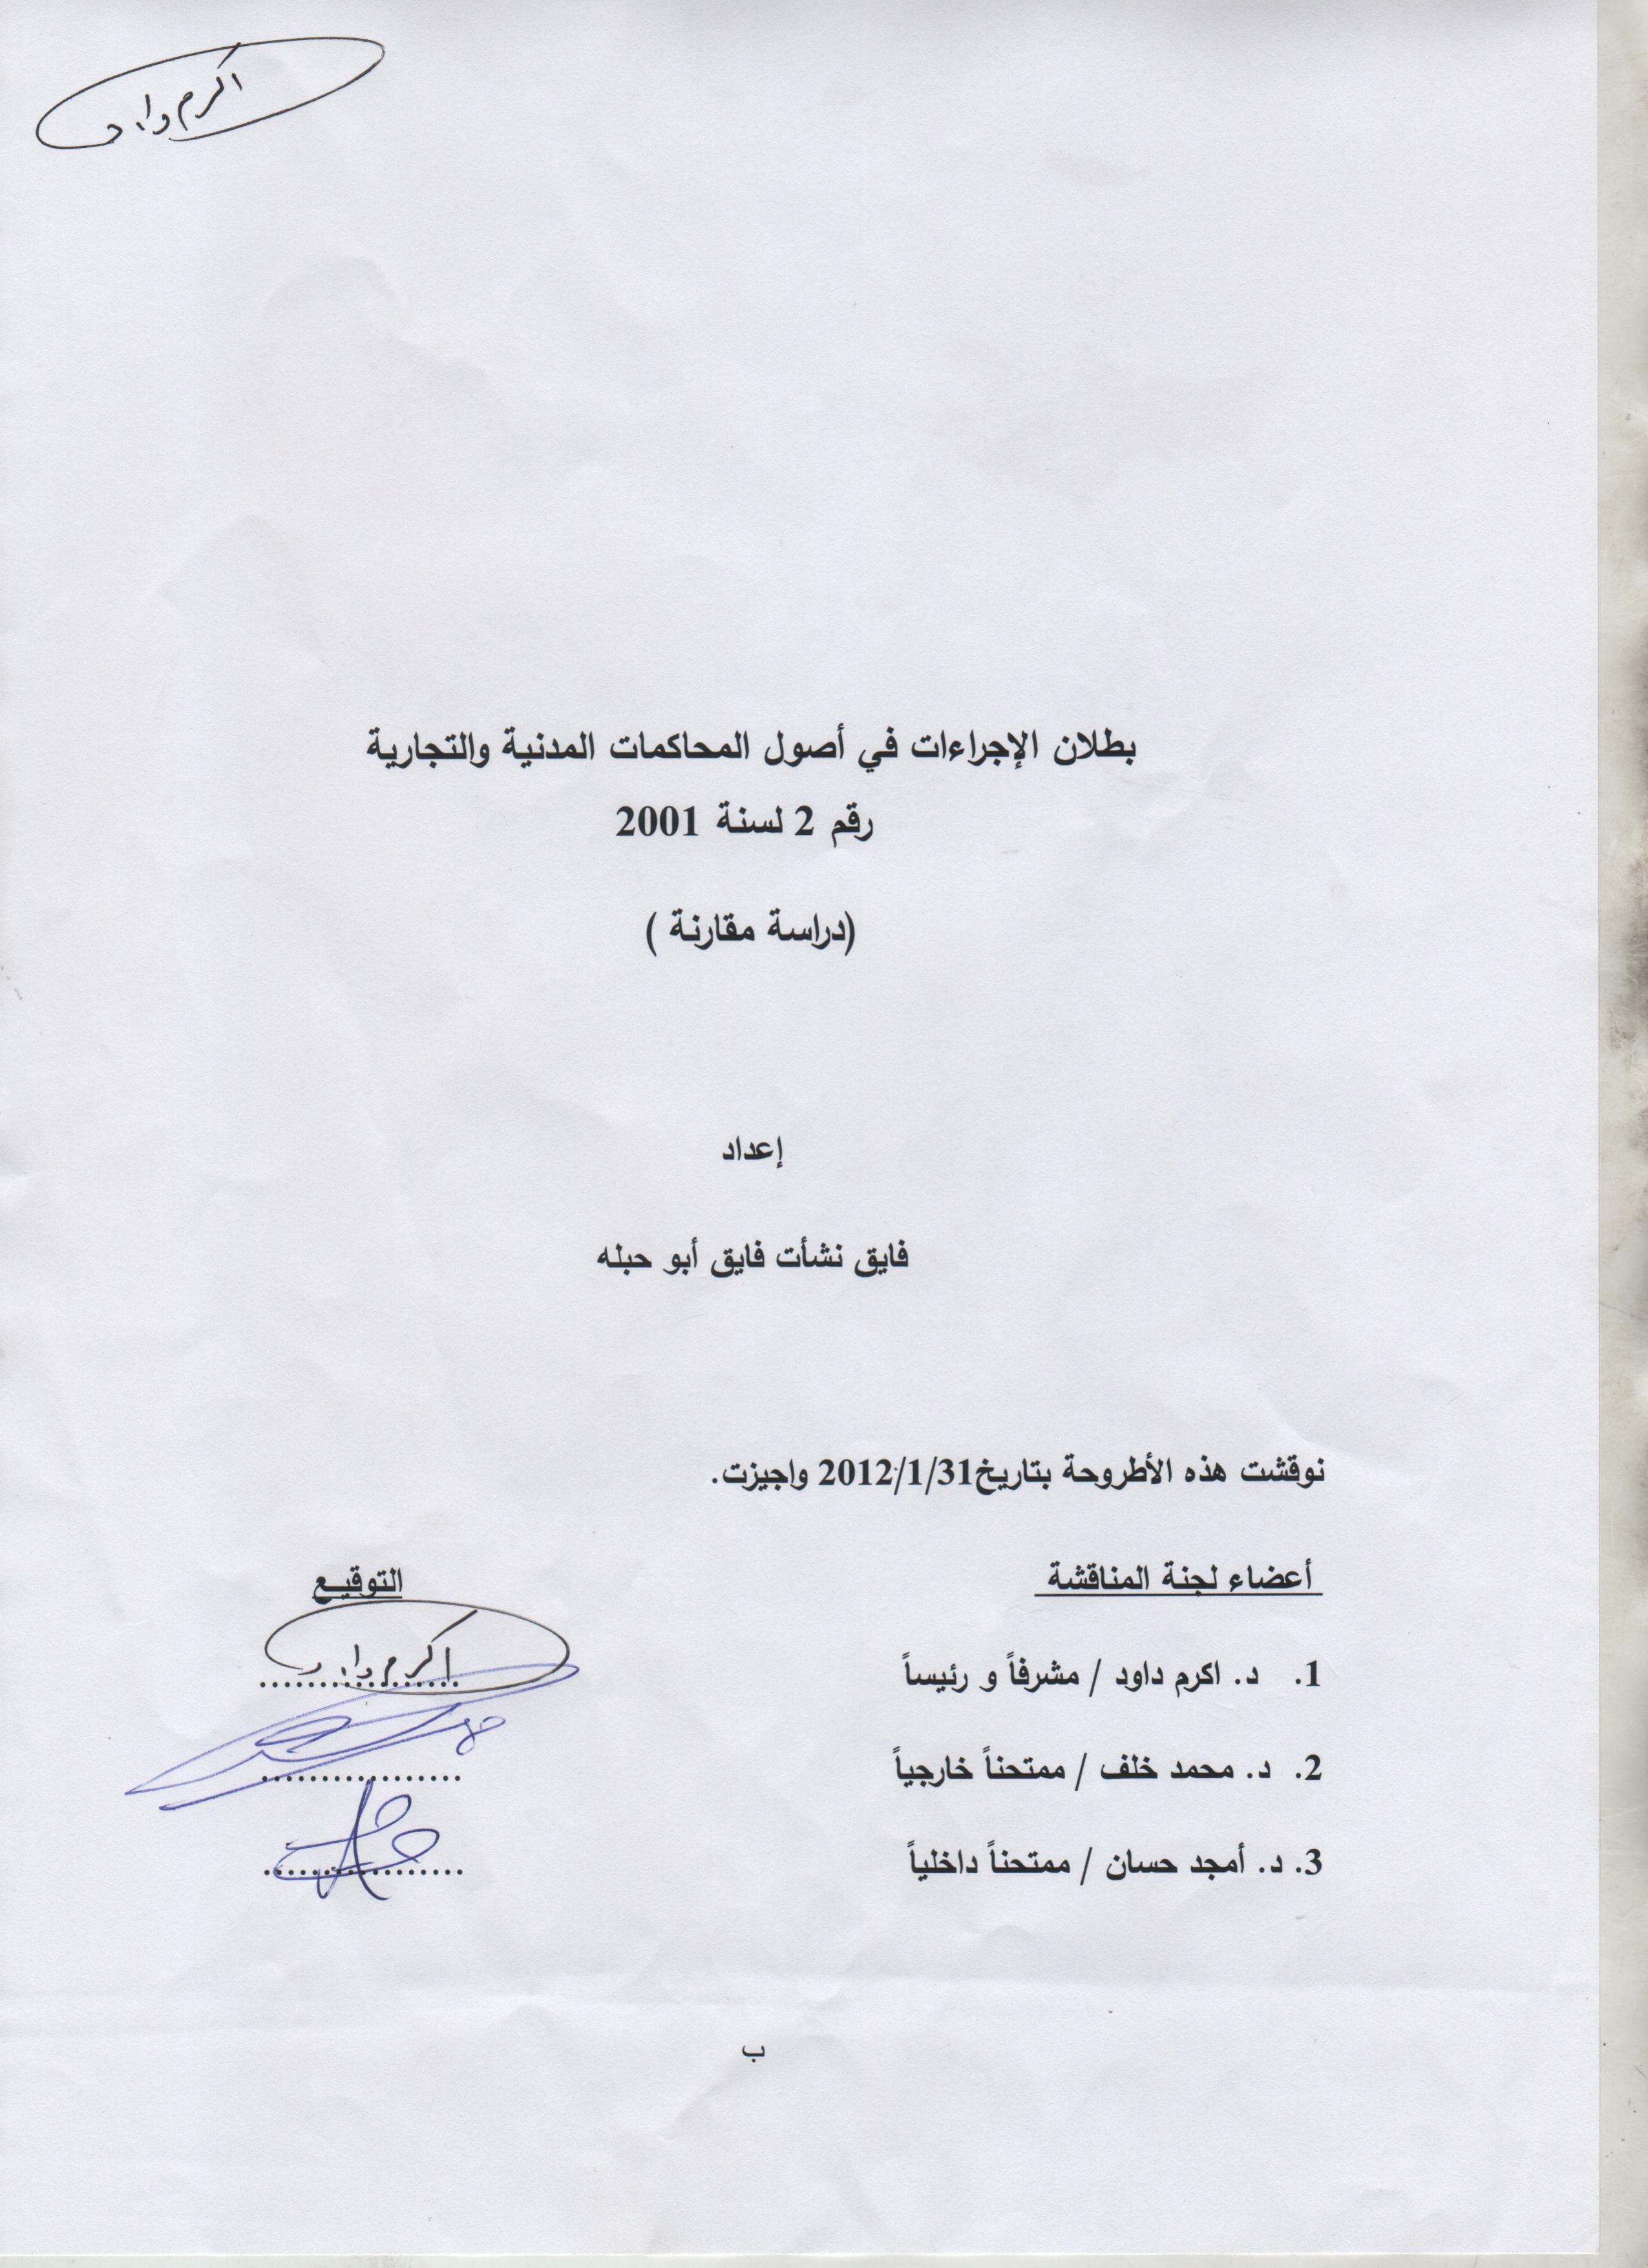 اكرم داود
بطلان الإجراءات في أصول المحاكمات المدنية والتجارية
رقم 2 لسنة 2001
(دراسة مقارنة )
إعداد
فايق نشأت فايق أبو حبله
نوقشت هذه الأطروحة بتاريخ2012/1/31 واجيزت.
أعضاء لجنة المناقشة التوقيع
1. د. اكرم داود / مشرفاً و رئيساً ................. اكرم داود
2. د. محمد خلف / ممتحناً خارجياً .................
3. د. أمجد حسان / ممتحناً داخلياً .................
ب